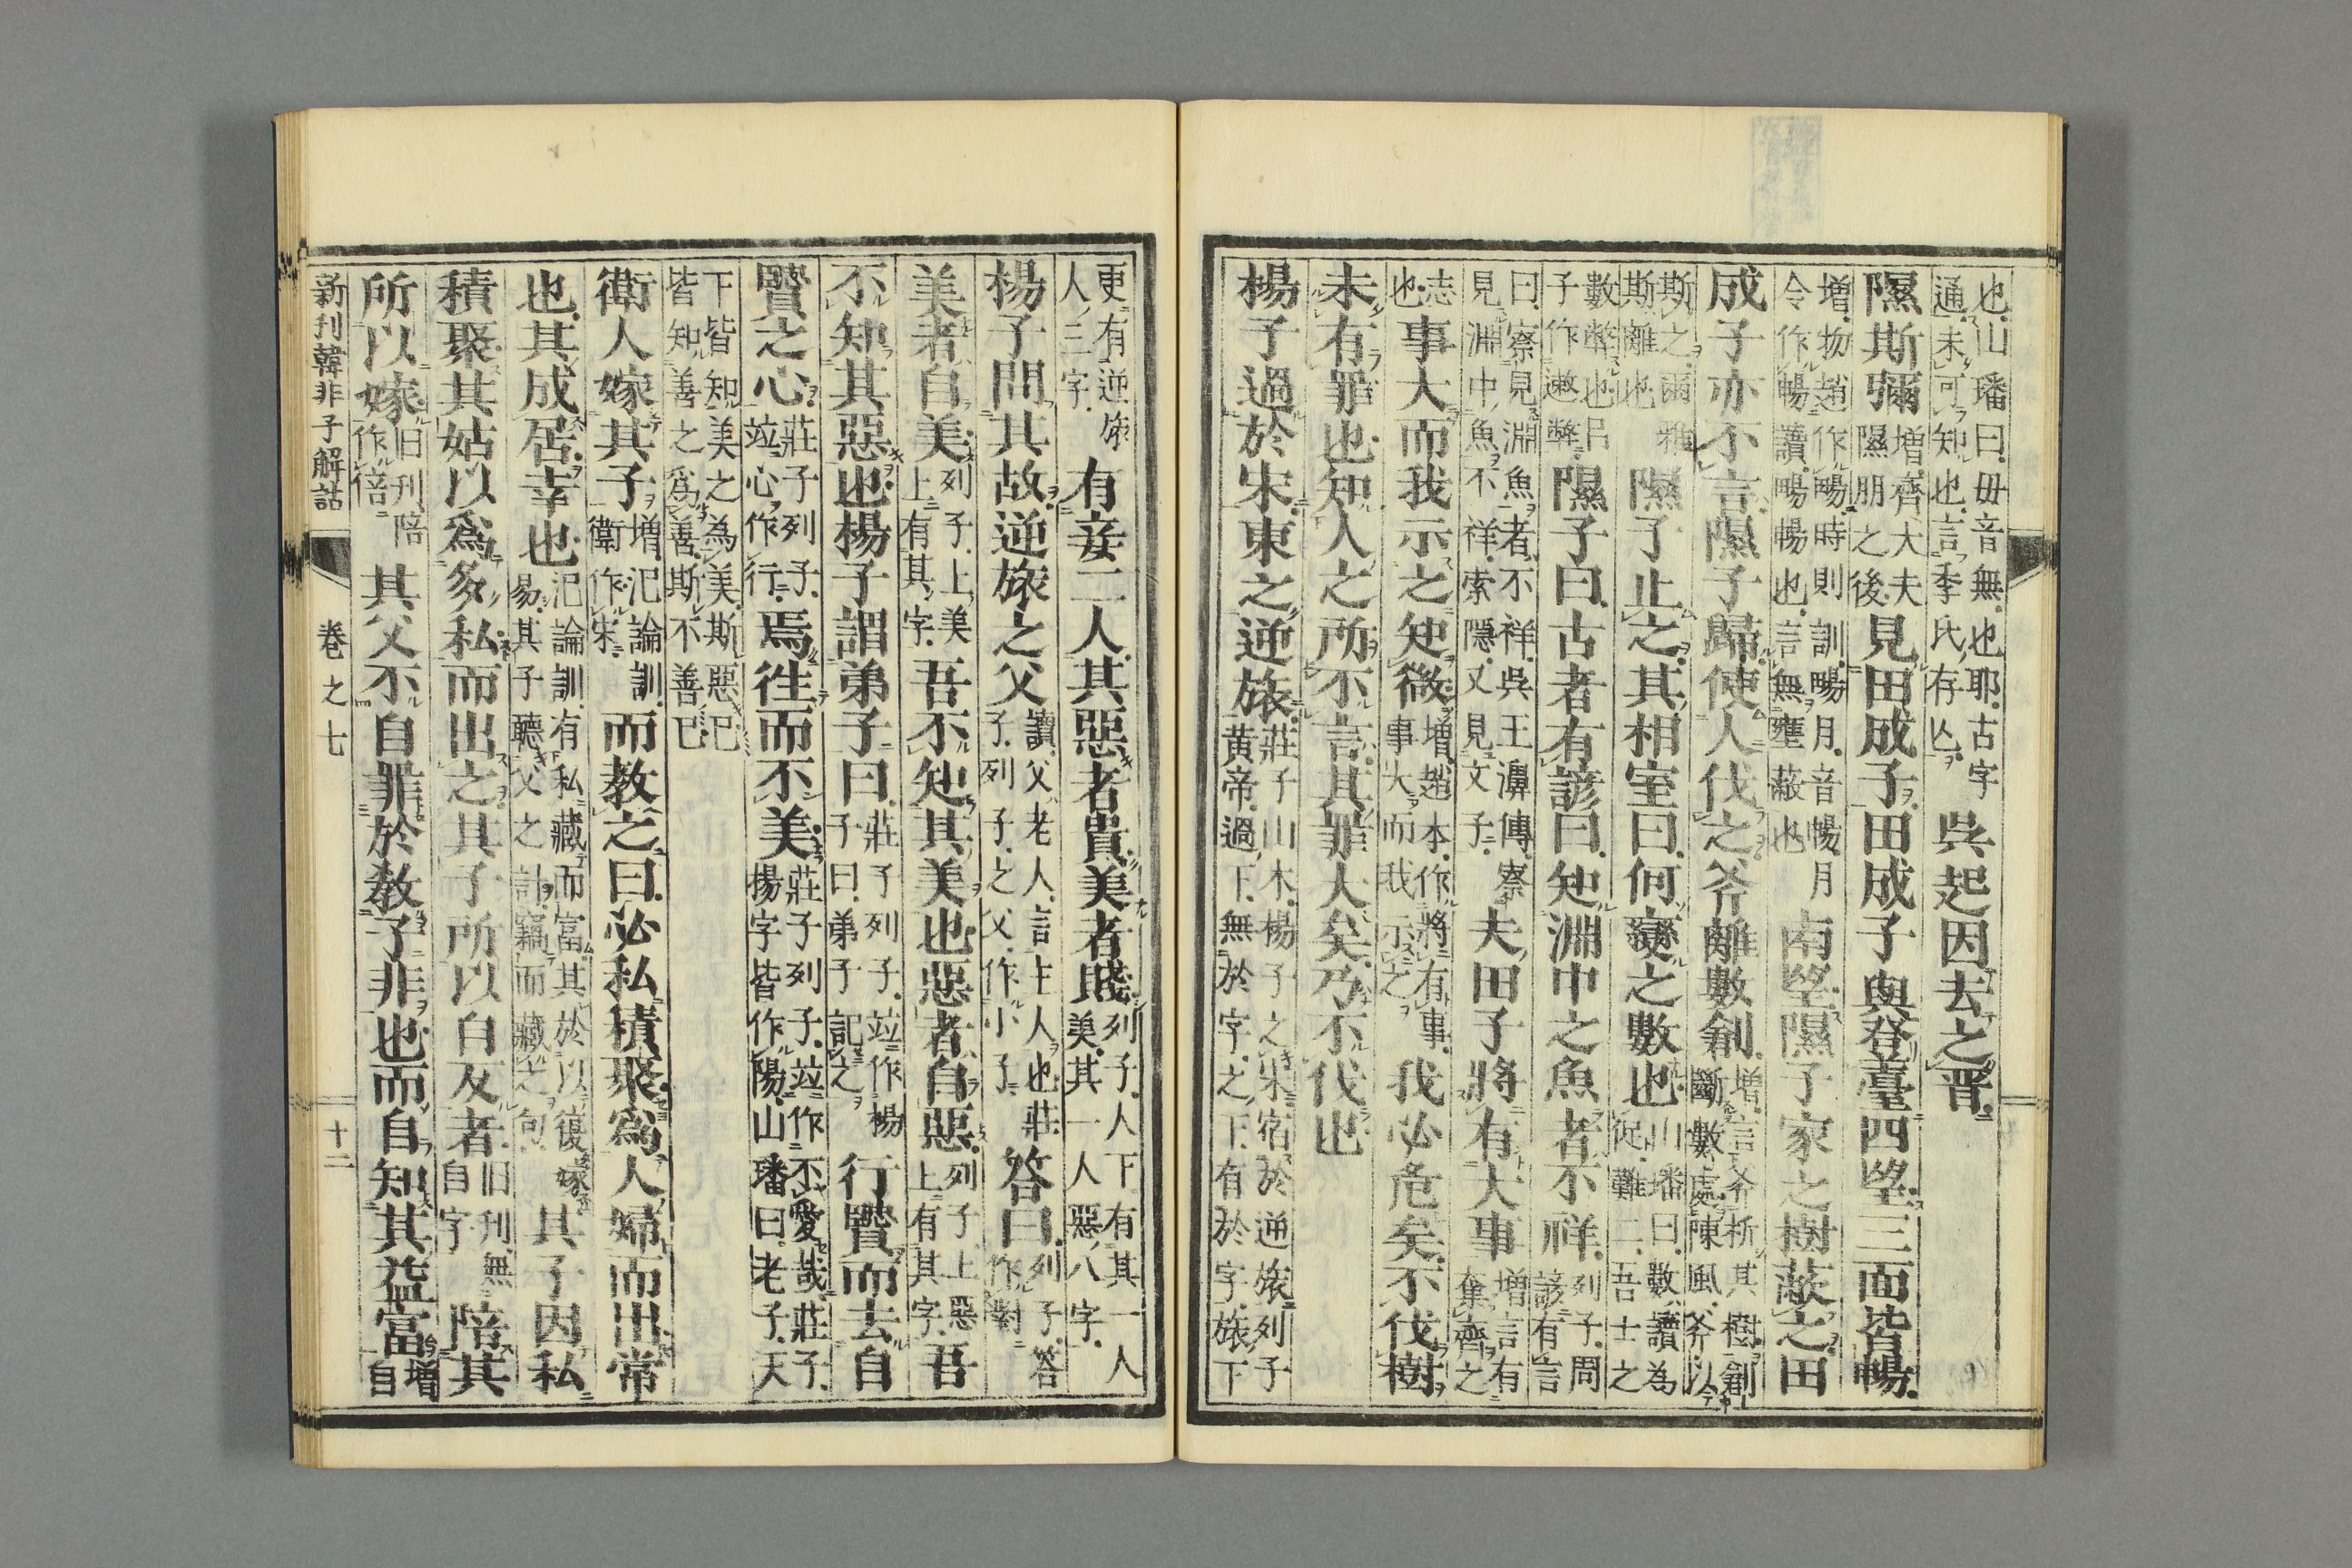 也山璠曰毋音無也耶古字
通未可知也言季氏存亾
吳起因去之晋
隰斯彌
增齊大夫
隰朋之後
見田成子田成子與登臺四望三面皆暢
增物趙作畼時則訓畼月音暢月
令作暢讀畼暢也言無壅蔽也
南望隰子家之樹蔽之田
成子亦不言隰子歸使人伐之斧離數創
增言斧析其樹創
斷數處陳風斧以
斯之爾雅
斯離也
隰子止之其相室曰何變之數也
山璠曰數讀為
促難二吾士之
數弊也呂
子作遬弊
隰子曰古者有諺曰知淵中之魚者不祥
列子周
諺有言
曰察見淵魚者不祥吳王濞傳察
見淵中魚不祥索隱又見文子
夫田子將有大事
增言有
奪齊之
志
也
事大而我示之知微
增趙本作將有事
事大而我示之
我必危矣不伐樹
未有罪也知人之所不言其罪大矣乃不伐也
楊子過於宋東之逆旅
莊子山木楊子之宋宿於逆旅列子
黄帝過下無於字之下有於字旅下
更有逆旅
人三字
有妾二人其惡者貴美者賤
列子人下有其一人
美其一人惡八字
楊子問其故逆旅之父
讀父老人言主人也莊
子列子之父作小子
答曰
列子答
作對
美者自美
列子上美
上有其字
吾不知其美也惡者自惡
列子上惡
上有其字
吾
不知其惡也楊子謂弟子曰
莊子列子竝作楊
子曰弟子記之
行賢而去自
賢之心
莊子列子
竝心作行
焉往而不美
莊子列子竝作不愛哉莊子
揚字皆作陽山璠曰老子天
下皆知美之為美斯惡已
皆知善之爲善斯不善已
衛人嫁其子
增氾論訓
衛作宋
而教之曰必私積聚爲人婦而出常
也其成居幸也
氾論訓有私藏而富其於以復嫁
易其子聽父之計竊而藏之
其子因私
積聚其姑以爲多私而出之其子所以自反者
旧刊無
自字
陪其
所以嫁
旧刊陪
作倍
其父不自罪於教子非也而自知其益富
增
自
新刊韓非子解詁
卷之七
十二